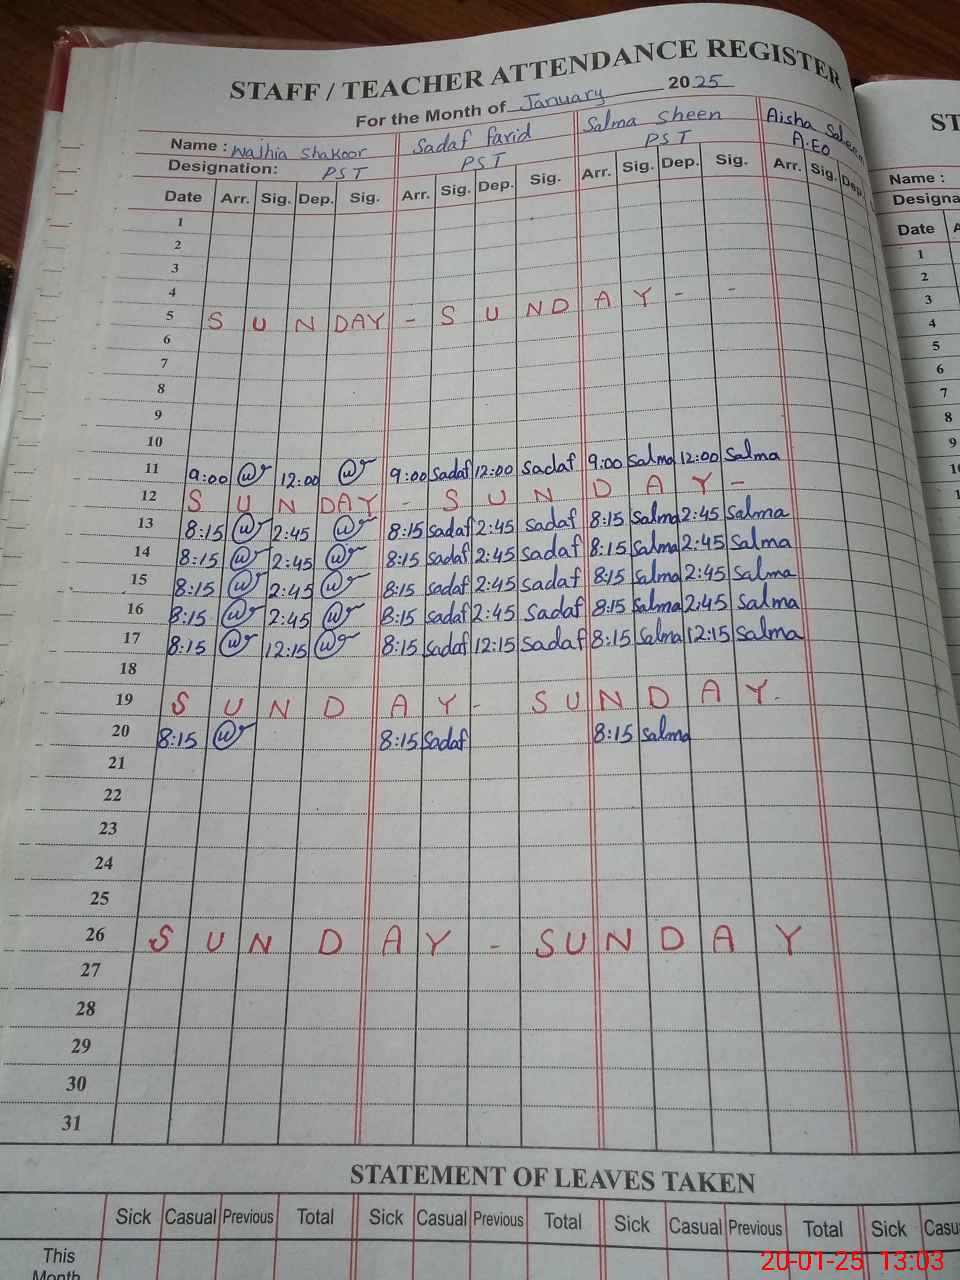 STAFF / TEACHER ATTENDANCE REGISTER
For the Month of January 2025
Name : Wajhia Shakoor Sadaf Farid Salma Sheen Aisha Saleem
Designation: PST PST PST A.EO
Date Arr. Sig. Dep. Sig. Arr. Sig. Dep. Sig. Arr. Sig. Dep. Sig. Arr. Sig. Dep.
1
2
3
4
5 S U N DAY - S U N D A Y - -
6
7
8
9
10
11 9:00 12:00 9:00 Sadaf 12:00 Sadaf 9:00 Salma 12:00 Salma
12 S U N DAY - S U N D A Y -
13 8:15 2:45 8:15 Sadaf 2:45 Sadaf 8:15 Salma 2:45 Salma
14 8:15 2:45 8:15 Sadaf 2:45 Sadaf 8:15 Salma 2:45 Salma
15 8:15 2:45 8:15 Sadaf 2:45 Sadaf 8:15 Salma 2:45 Salma
16 8:15 2:45 8:15 Sadaf 2:45 Sadaf 8:15 Salma 2:45 Salma
17 8:15 12:15 8:15 Sadaf 12:15 Sadaf 8:15 Salma 12:15 Salma
18
19 S U N D A Y - S U N D A Y.
20 8:15 8:15 Sadaf 8:15 Salma
21
22
23
24
25
26 S U N D A Y - S U N D A Y
27
28
29
30
31
STATEMENT OF LEAVES TAKEN
Sick Casual Previous Total Sick Casual Previous Total Sick Casual Previous Total Sick Casu
This
Month
ST
Name :
Designa
Date A
1
2
3
4
5
6
7
8
9
10
1
20-01-25 13:03